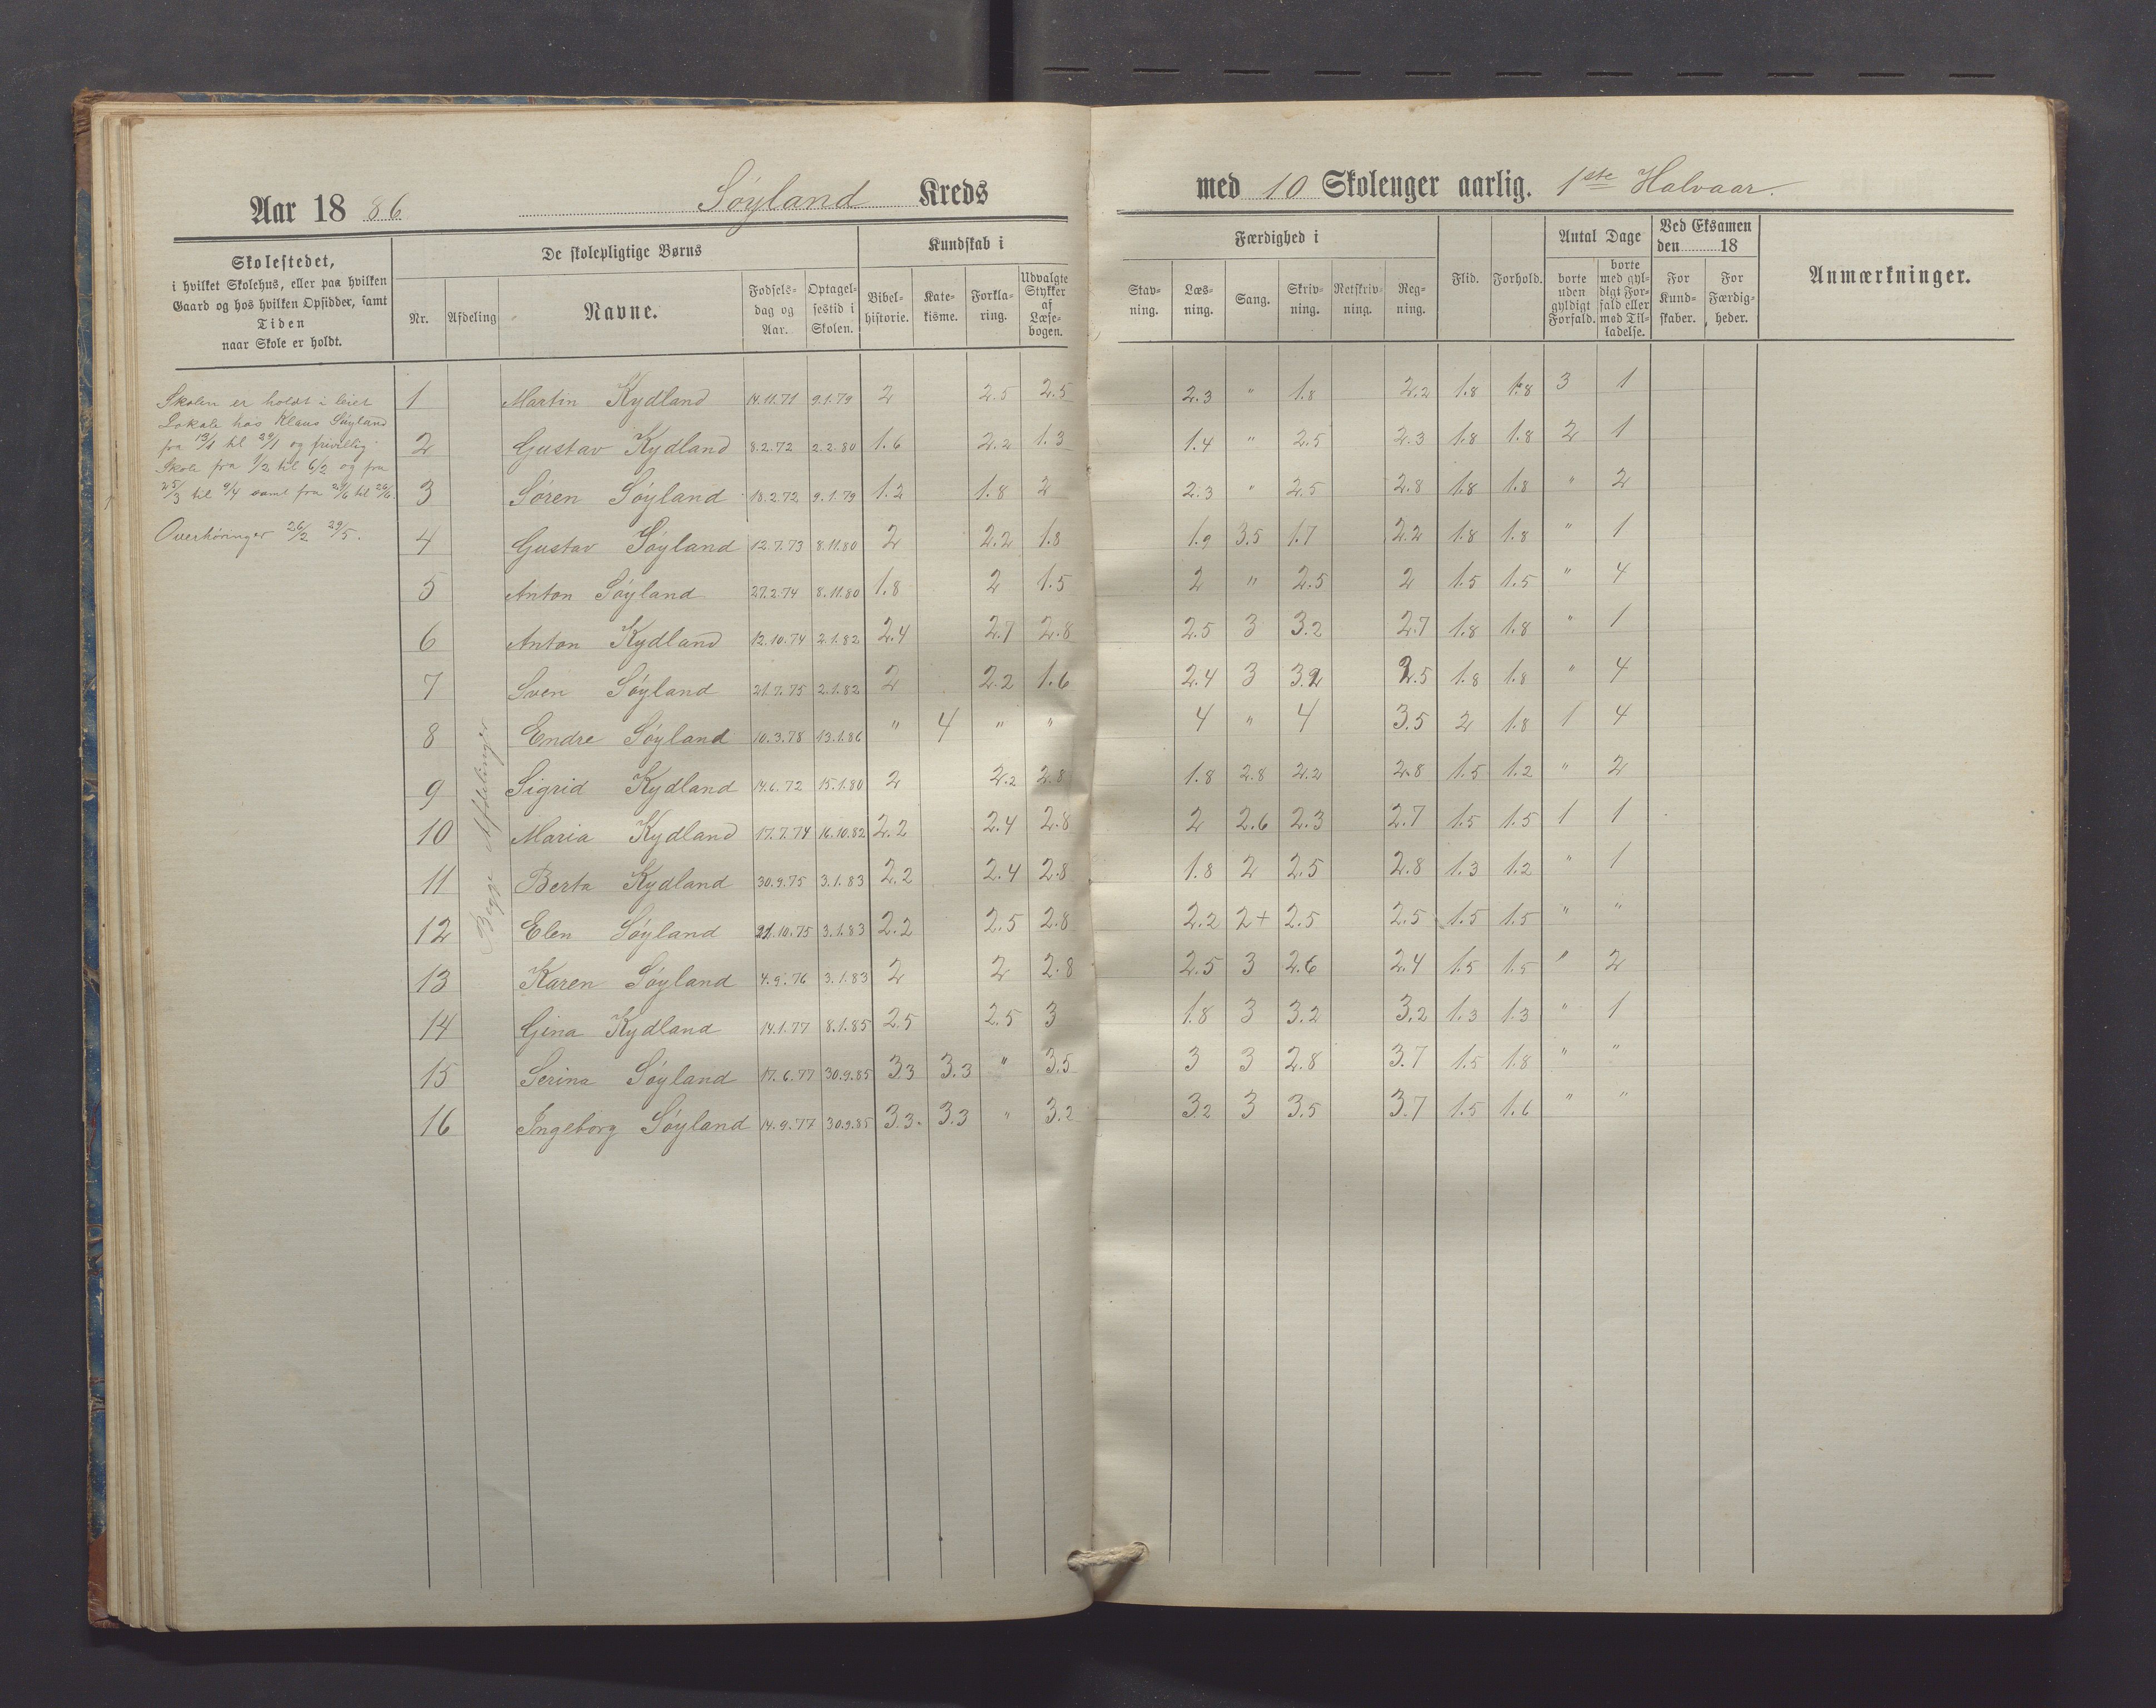 Aar 1886 Søyland Kreds med 10 Skoleuger aarlig. 1ste Halvaar.
Skolestedet,
i hvilket Skolehus, eller paa hvilken
Gaard og hos hvilken Opsidder, samt
Tiden
naar Skole er holdt.
De skolepligtige Børns
Nr. Afdeling Navne. Fødsels-dag og Aar. Optagel-sestid i Skolen.
Kundskab i
Bibel-historie. Kate-kisme. Forkla-ring. Udvalgte Stykker af Læse-bogen.
Færdighed i
Stav-ning. Læs-ning. Sang. Skriv-ning. Retskriv-ning. Reg-ning.
Flid. Forhold.
Antal Dage
borte uden gyldigt Forfald. borte med gyl-digt For-fald eller med Til-ladelse.
Ved Eksamen
den 18
For Kund-skaber. For Færdig-heder.
Anmærkninger.
Skolen er holdt i leiet
Lokale hos Klaus Søyland
fra 13/1 til 29/1 og frivillig
Skole fra 1/2 til 6/2 og fra
25/3 til 9/4 samt fra 21/6 til 26/6.
Overhøringer 26/2 29/5.
Begge Afdelinger
1 Martin Kydland 14.11.71 9.1.79 2 2.5 2.5 2.3 " 1.8 2.2 1.8 1.8 3 1
2 Gustav Kydland 8.2.72 2.2.80 1.6 2.2 1.3 1.4 " 2.5 2.3 1.8 1.8 2 1
3 Søren Søyland 18.2.72 9.1.79 1.2 1.8 2 2.3 " 2.5 2.8 1.8 1.8 " 2
4 Gustav Søyland 12.7.73 8.11.80 2 2.2 1.8 1.9 3.5 1.7 2.2 1.8 1.8 " 1
5 Anton Søyland 27.2.74 8.11.80 1.8 2 1.5 2 " 2.5 2 1.5 1.5 " 4
6 Anton Kydland 12.10.74 2.1.82 2.4 2.7 2.8 2.5 3 3.2 2.7 1.8 1.8 " 1
7 Sven Søyland 21.7.75 2.1.82 2 2.2 1.6 2.4 3 3.2 2.5 1.8 1.8 " 4
8 Endre Søyland 10.3.78 13.1.86 " 4 " " 4 " 4 3.5 2 1.8 1 4
9 Sigrid Kydland 14.6.72 15.1.80 2 2.2 2.8 1.8 2.8 2.2 2.8 1.5 1.2 " 2
10 Maria Kydland 17.7.74 16.10.82 2.2 2.4 2.8 2 2.6 2.3 2.7 1.5 1.5 1 1
11 Berta Kydland 30.9.75 3.1.83 2.2 2.4 2.8 1.8 2 2.5 2.8 1.3 1.2 " 1
12 Elen Søyland 21.10.75 3.1.83 2.2 2.5 2.8 2.2 2+ 2.5 2.5 1.5 1.5 " "
13 Karen Søyland 4.9.76 3.1.83 2 2 2.8 2.5 3 2.6 2.4 1.5 1.5 " 2
14 Gina Kydland 14.1.77 8.1.85 2.5 2.5 3 1.8 3 3.2 3.2 1.3 1.3 " 1
15 Serina Søyland 17.6.77 30.9.85 3.3 3.3 " 3.5 3 3 2.8 3.7 1.5 1.8 " "
16 Ingeborg Søyland 14.9.77 30.9.85 3.3. 3.3 " 3.2 3.2 3 3.5 3.7 1.5 1.6 " "